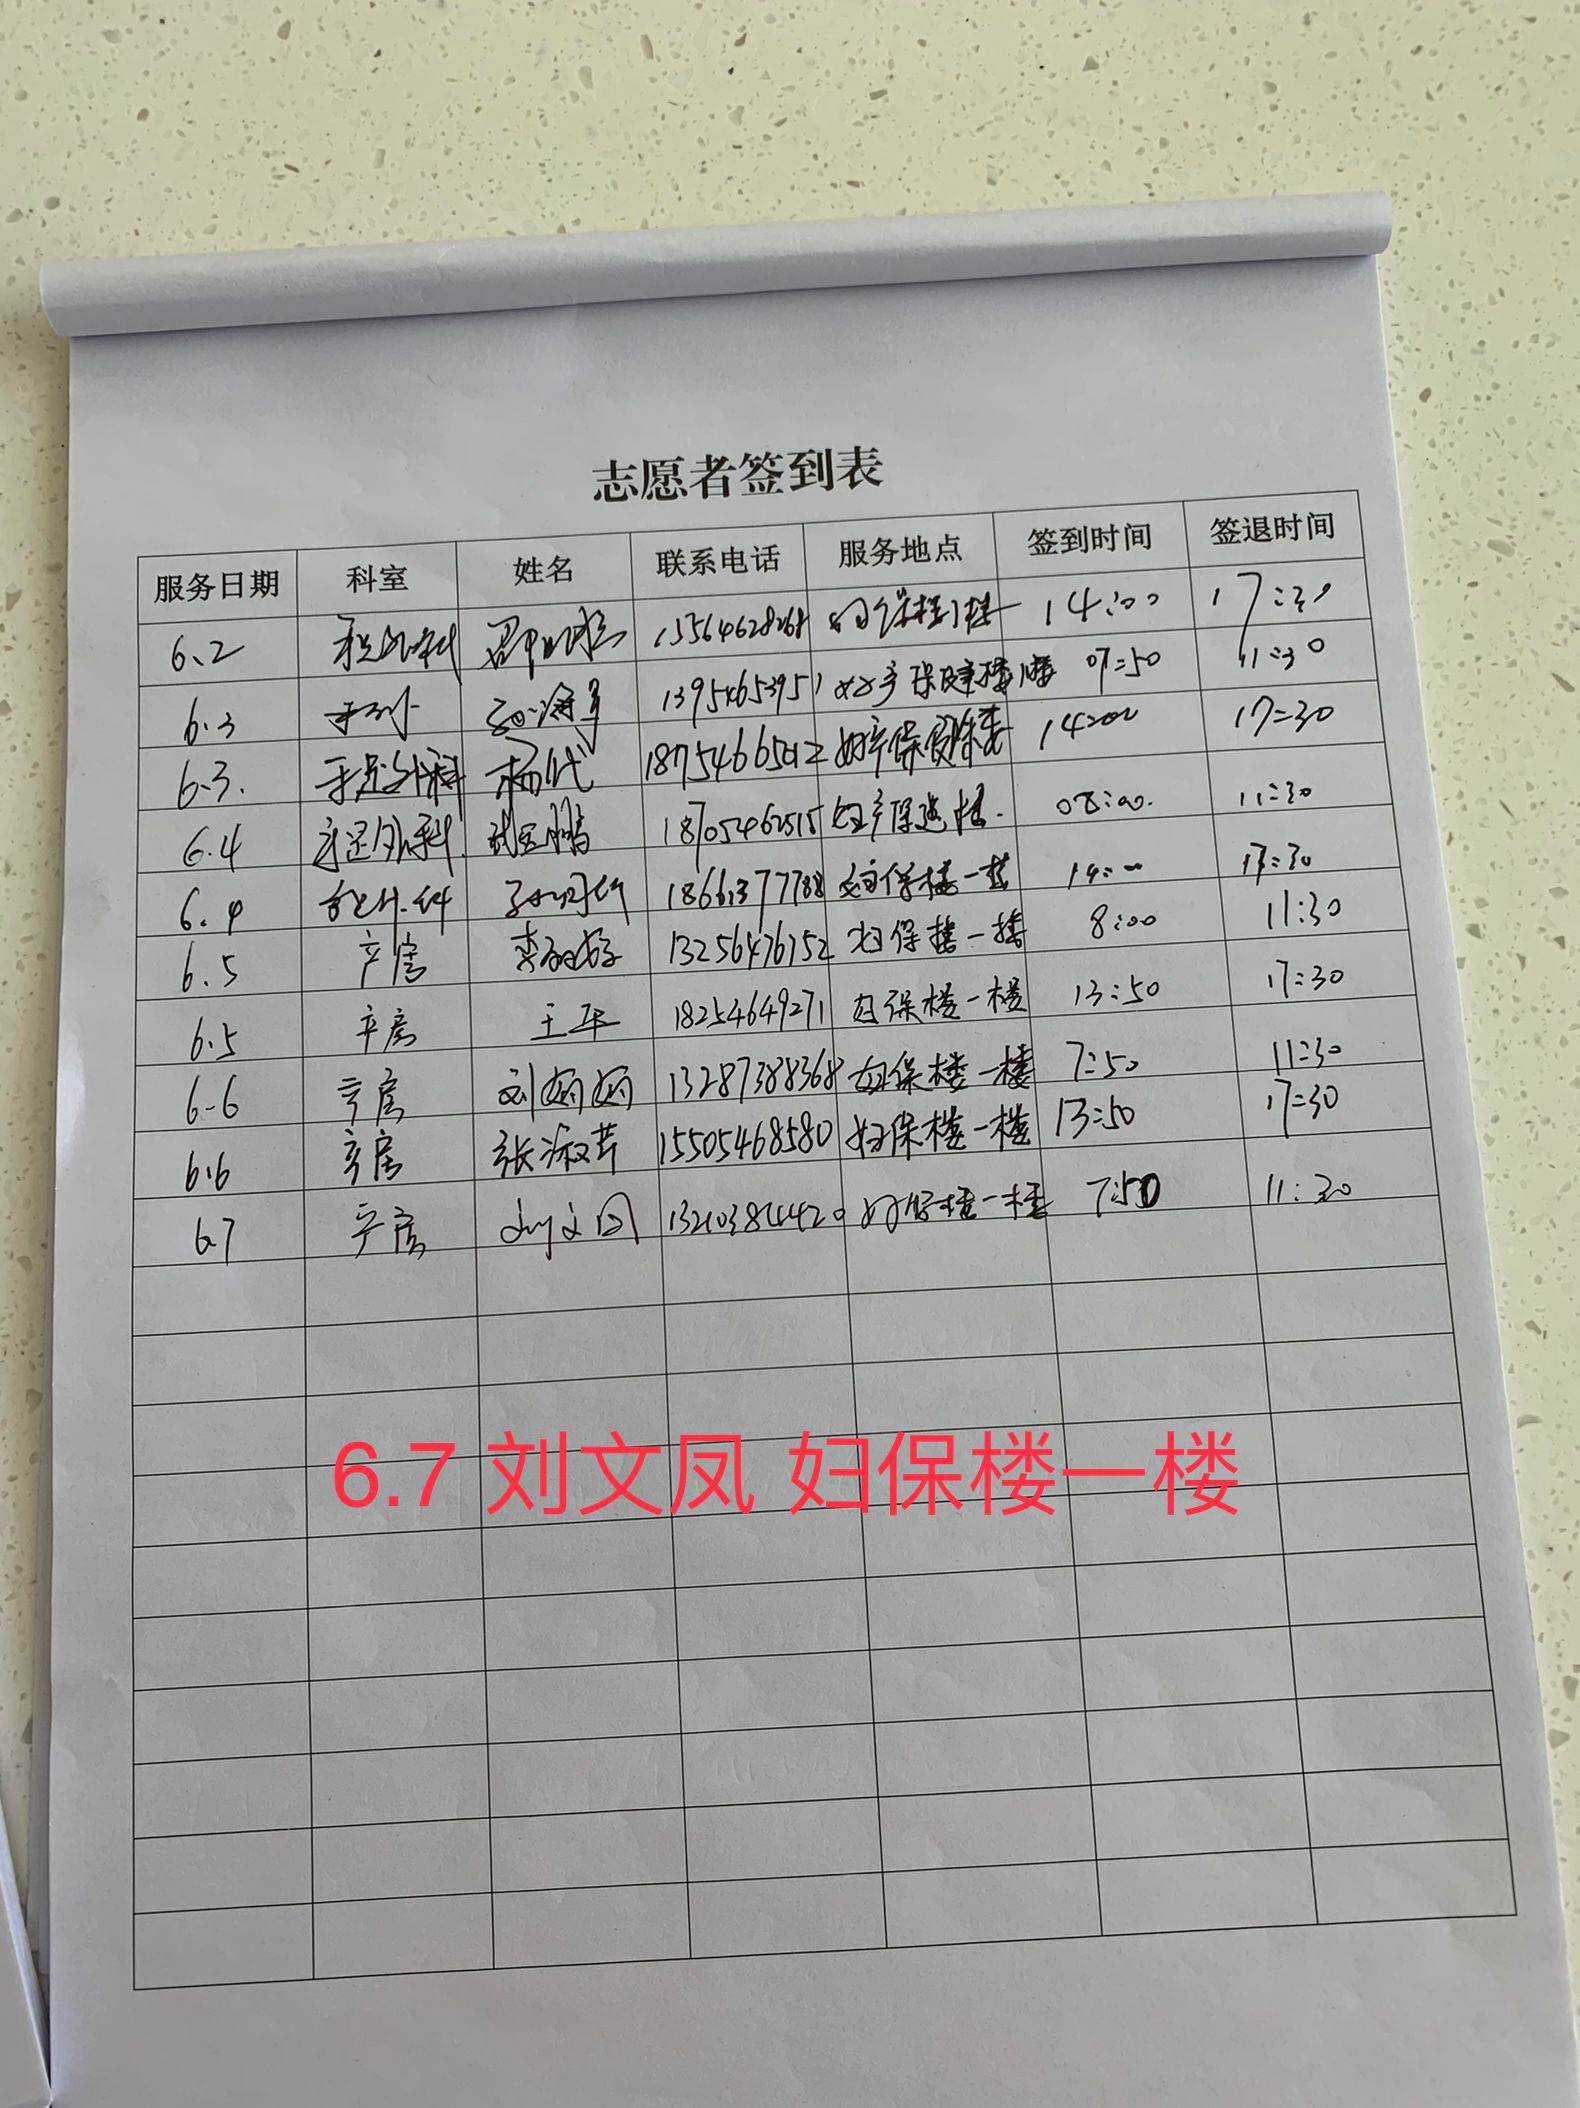 志愿者签到表
服务日期 科室 姓名 联系电话 服务地点 签到时间 签退时间
6.2 14:00 17:30
6.3 07:50 11:30
6.3. 手足外科 杨代 18754665012 14:00 17:30
6.4 手足外科. 18705462515 08:00. 11:30
6.4 18661377788 妇保楼一楼 14:00 17:30
6.5 产房 13256476752 妇保楼一楼 8:00 11:30
6.5 产房 王平 18254649271 妇保楼一楼 13:50 17:30
6-6 产房 刘娟娟 13287388368 妇保楼一楼 7:50 11:30
6.6 产房 张淑芹 15505468580 妇保楼一楼 13:50 17:30
6.7 产房 刘文凤 13210384420 妇保楼一楼 7:50 11:30
6.7 刘文凤 妇保楼一楼